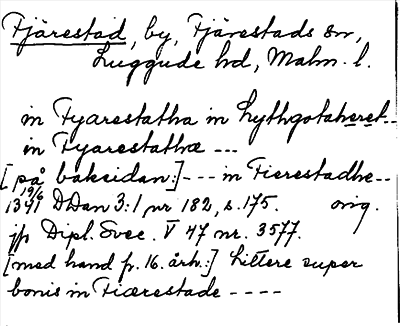 Fjärestad, by, Fjärestads sn,
Luggude hd, Malm. l.
in Fyarestatha in Lythgotaheret--
in Fyarestathæ ---
[på baksidan:]--- in Fierestadhe--
19/6
1341 DDan 3:1 nr 182, s. 175. orig.
jfr Dipl. Svec. V 47 nr. 3577.
[med hand fr. 16. årh.:] Littere super
bonis in Fiærestade ----